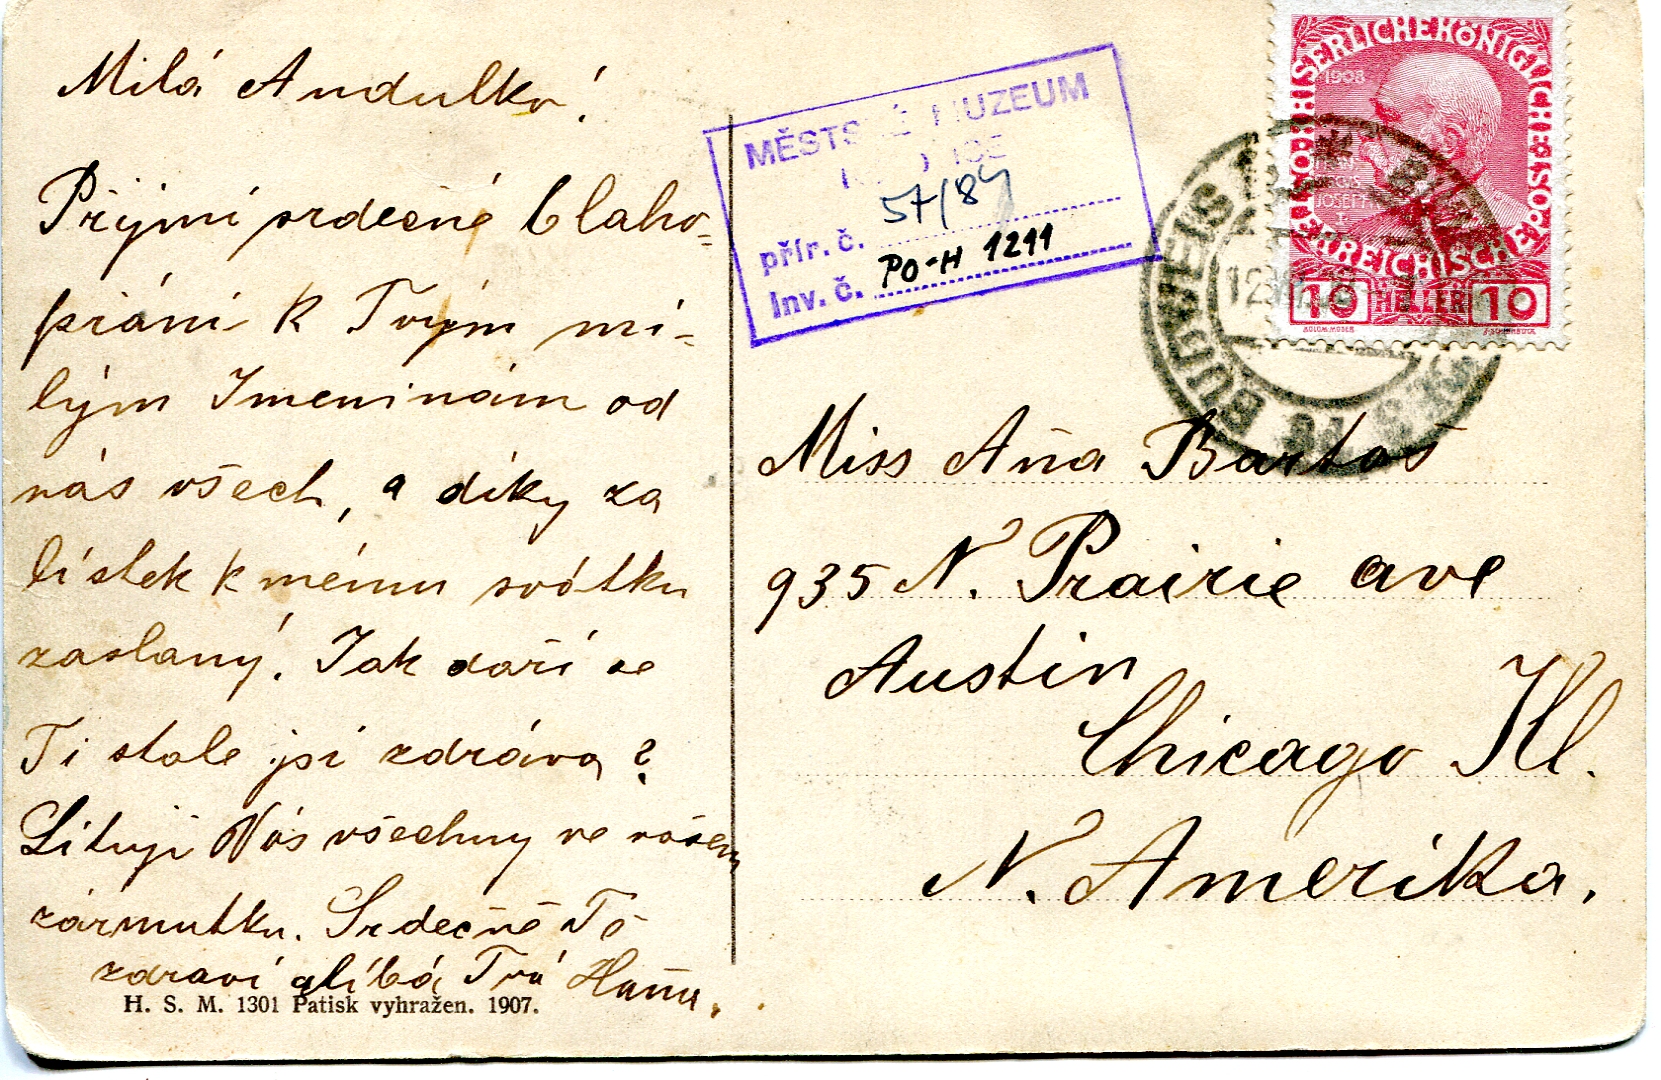 Milá Andulko!
Přijmi srdečné blaho-
přání k Tvým mi-
lým Jmeninám od
nás všech, a díky za
lístek k mému svátku
zaslaný. Jak daří se
Ti stále jsi zdráva?
Lituji Vás všechny ve vašem
zármutku. Srdečně Tě
zdraví a líbá Tvá Hanča.
H. S. M. 1301 Patisk vyhražen. 1907.
MĚSTSKÉ MUZEUM
přír. č. 57/84
Inv. č. PO-H 1211
KAISERLICHE KÖNIGLICHE ÖSTERREICHISCHE POST
1908
FRANZ JOSEF I
10 HELLER 10
BUDWEIS
Miss Aňa Bartoš
935 N. Prairie ave
Austin
Chicago Ill.
N. Amerika.